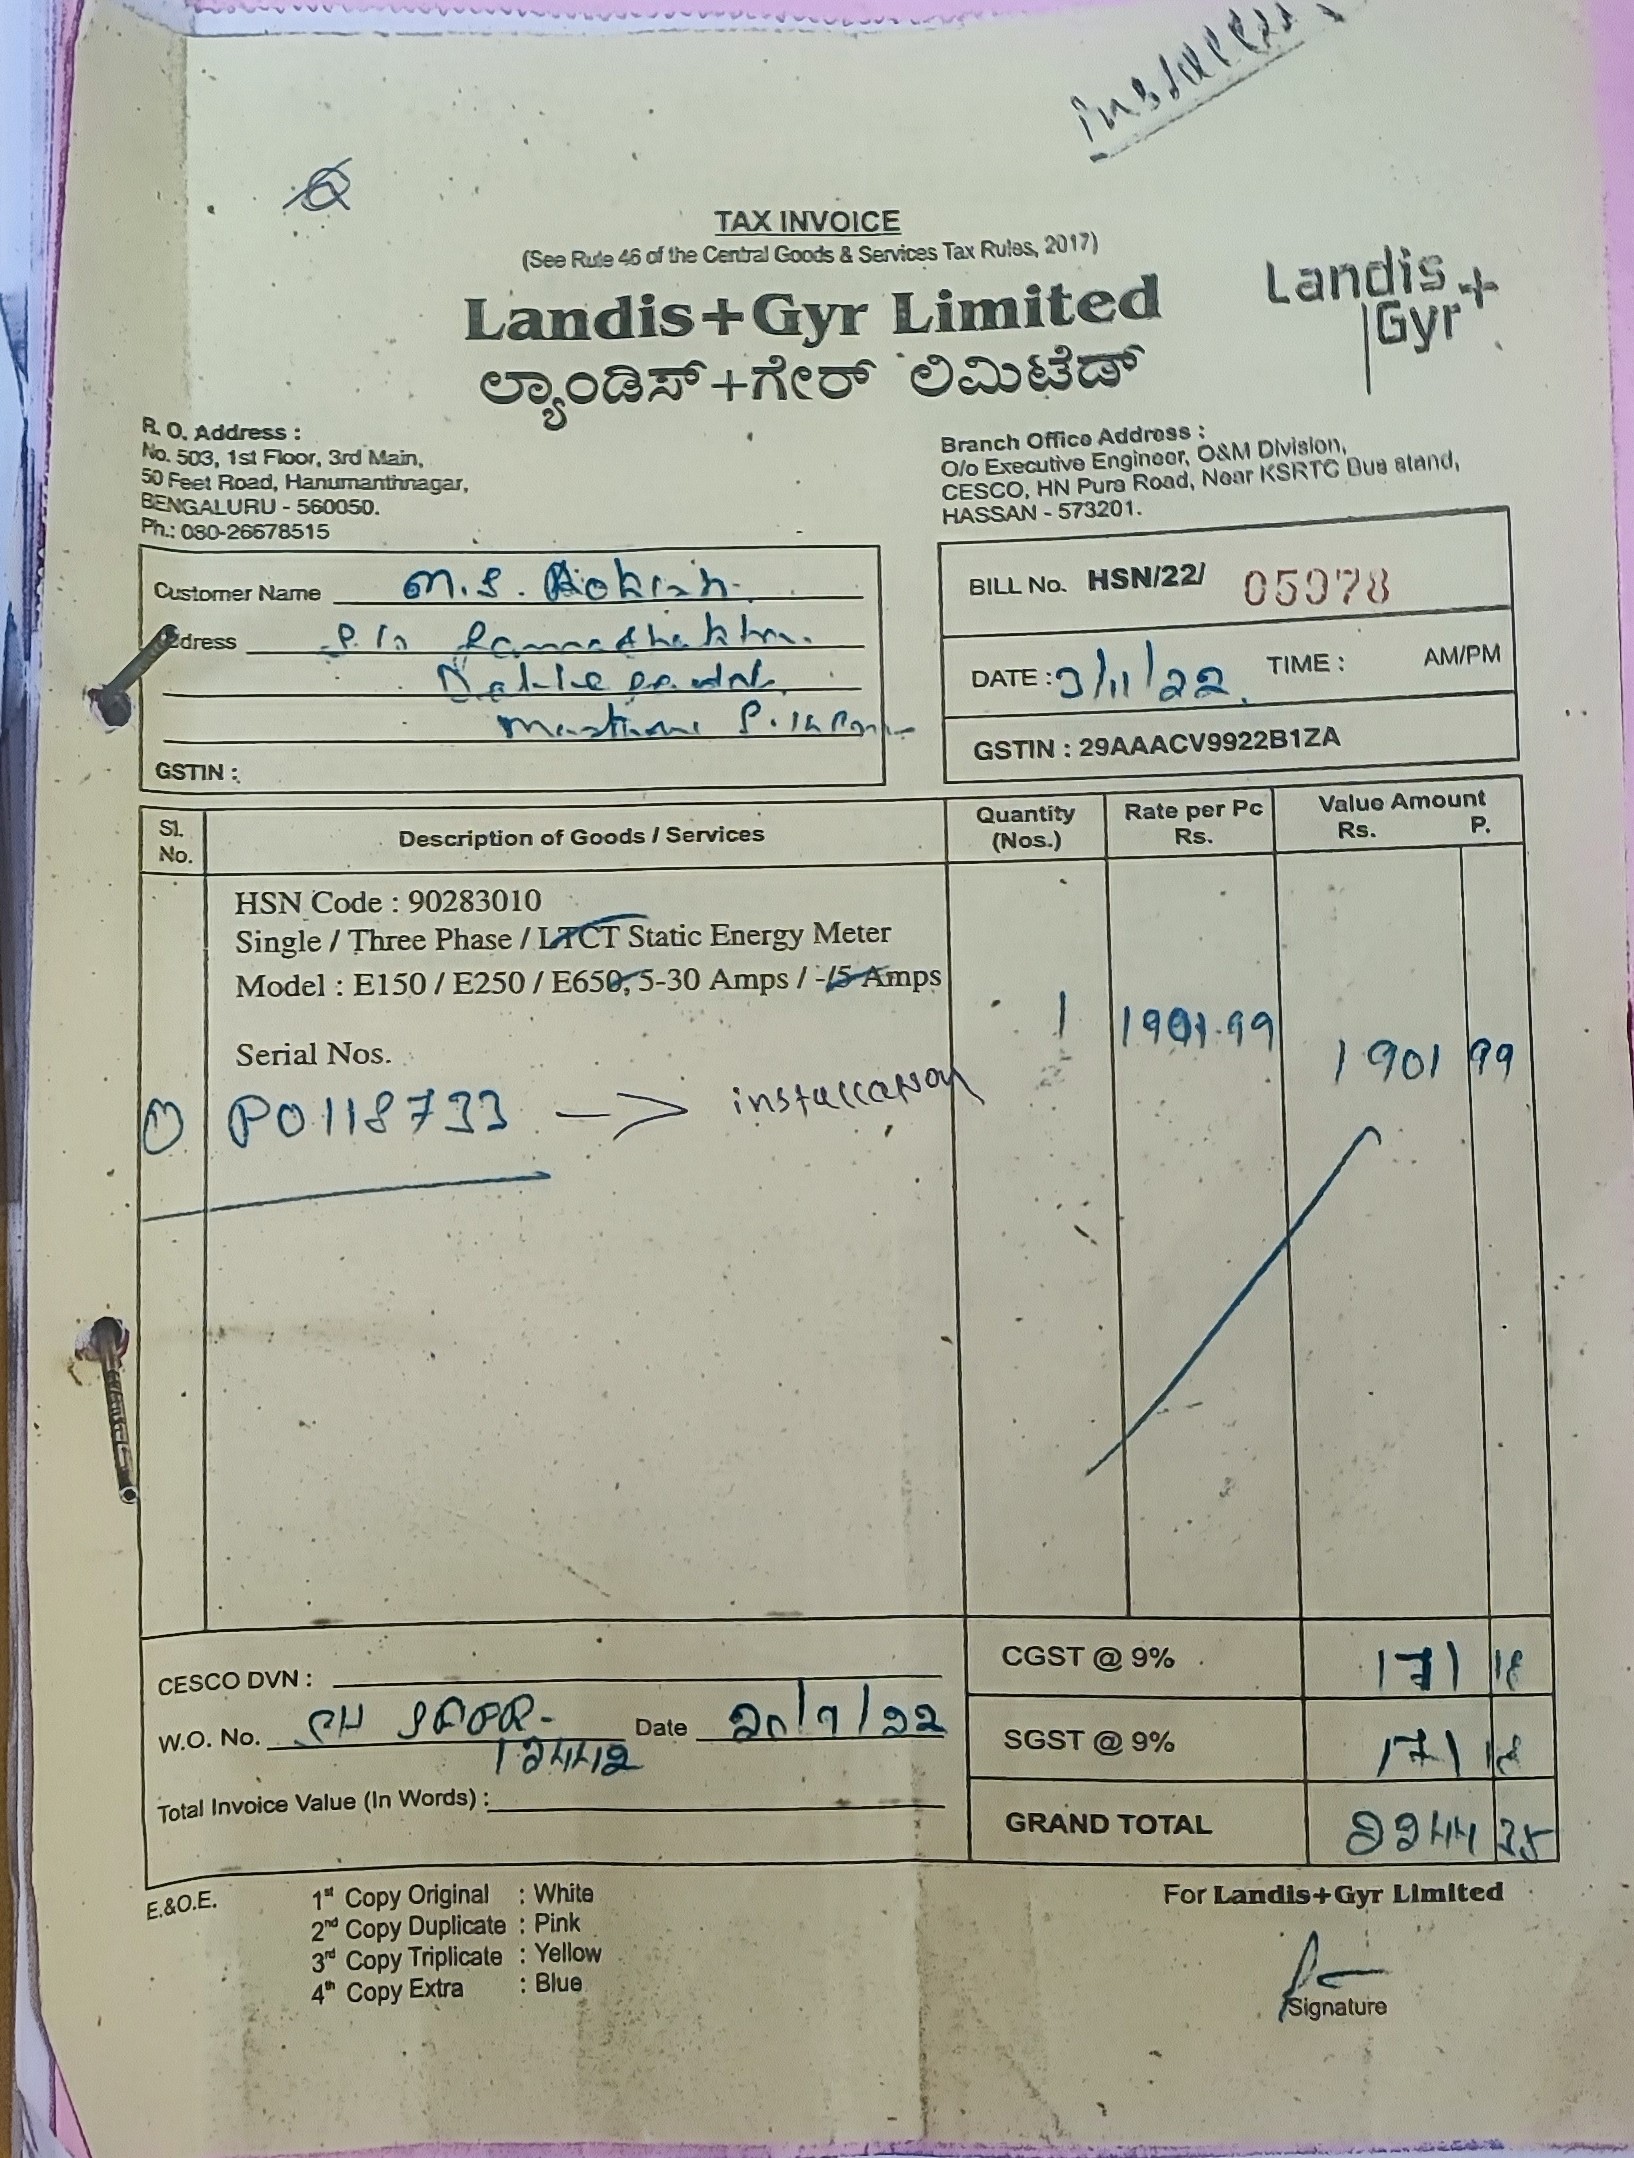 installa
TAX INVOICE
(See Rule 46 of the Central Goods & Services Tax Rules, 2017)
Landis+Gyr Limited
ಲ್ಯಾಂಡಿಸ್+ಗೇರ್ ಲಿಮಿಟೆಡ್
Landis+
Gyr
R. O. Address :
No. 503, 1st Floor, 3rd Main,
50 Feet Road, Hanumanthnagar,
BENGALURU - 560050.
Ph.: 080-26678515
Branch Office Address :
O/o Executive Engineer, O&M Division,
CESCO, HN Pura Road, Near KSRTC Bus stand,
HASSAN - 573201.
Customer Name M.S.
dress
GSTIN :
BILL No. HSN/22/ 05978
DATE : 3/11/22 TIME : AM/PM
GSTIN : 29AAACV9922B1ZA
Sl. No. Description of Goods / Services Quantity (Nos.) Rate per Pc Rs. Value Amount Rs. P.
HSN Code : 90283010
Single / Three Phase / LTCT Static Energy Meter
Model : E150 / E250 / E650, 5-30 Amps / -/5 Amps
1 1901.99 1901 99
Serial Nos.
P0118733 -> installation
CESCO DVN :
W.O. No. Date 20/9/22
12442
Total Invoice Value (In Words) :
CGST @ 9% 171 18
SGST @ 9% 171 18
GRAND TOTAL 2244 35
E.&O.E.
1st Copy Original : White
2nd Copy Duplicate : Pink
3rd Copy Triplicate : Yellow
4th Copy Extra : Blue
For Landis+Gyr Limited
Signature